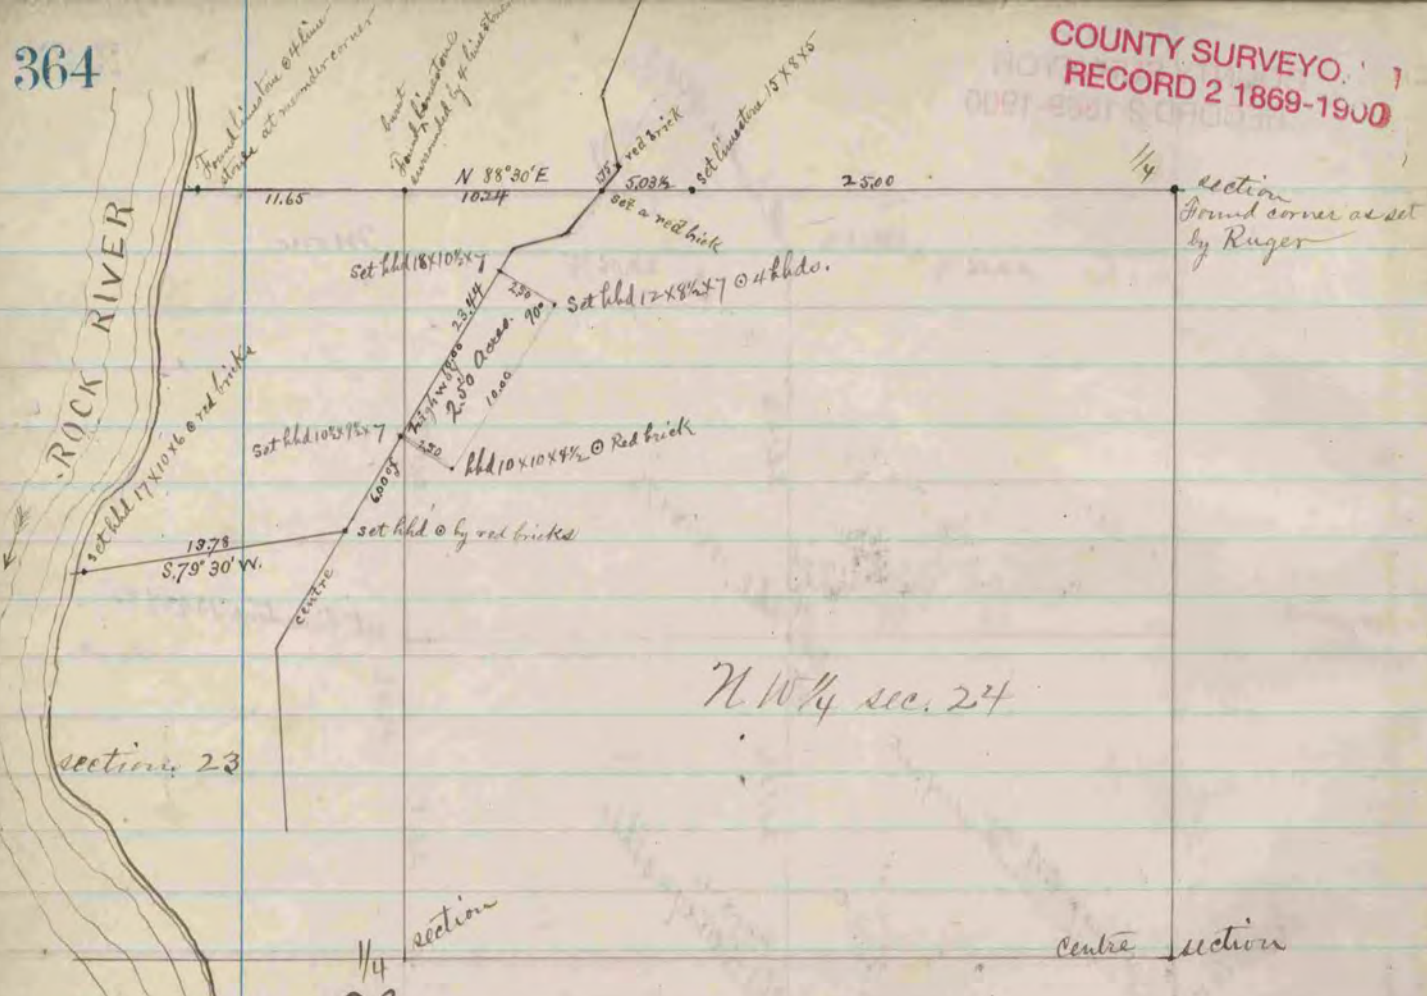 364
COUNTY SURVEYO
RECORD 2 1869-1900
Found limestone ⊙ 4 lime
stones at meander corner
burnt
Found limestone
surrounded by 4 limestones
red brick
set limestone 15 x 8 x 5
N 88°30'E
11.65
10.24
.75
5.03½
25.00
1/4
section
Found corner as set
by Ruger
set a red brick
ROCK RIVER
Set hhd 18 x 10½ x 7
2.50
90°
Set hhd 12 x 8½ x 7 ⊙ 4 hhds.
23.44
highway
2.50 acres.
10.00
Set hhd 10½ x 9½ x 7
2.50
hhd 10 x 10 x 8½ ⊙ Red brick
6.00
of
set hhd 17 x 10 x 6 ⊙ red bricks
set hhd ⊙ by red bricks
13.78
S. 79° 30' W.
centre
N W 1/4 sec. 24
section. 23
1/4
section
centre
section